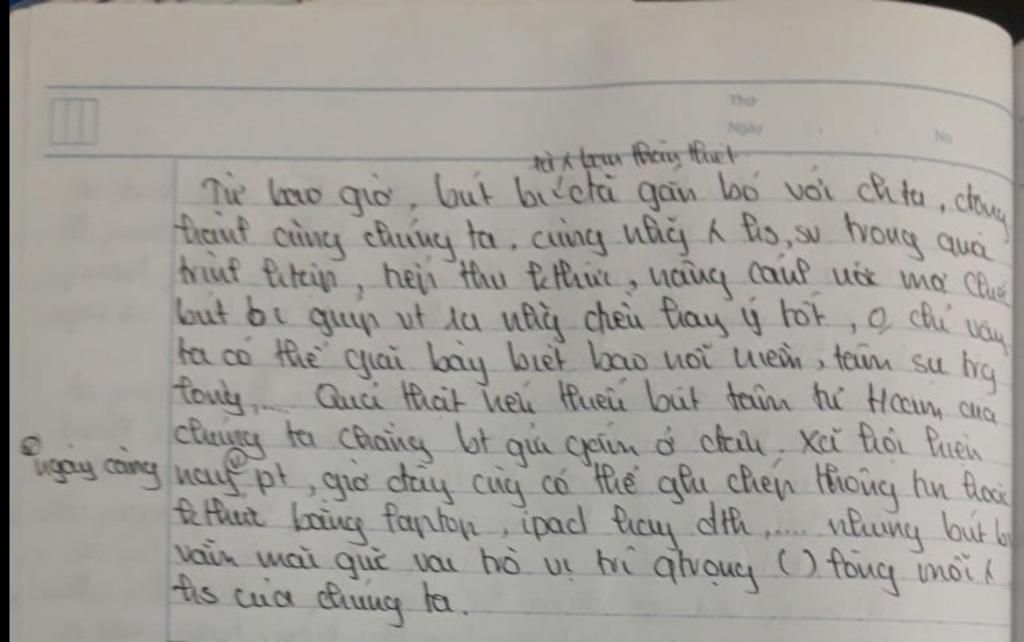 Thứ
Ngày
No
từ λ bạn thân thiết
Từ bao giờ, bút bi đã gắn bó với ch ta, đồng
hành cùng chúng ta, cùng nhg λ hs, sv trong quá
trình htập, tiếp thu kthức, nâng cánh ước mơ
bút bi giúp vt ra nhg điều hay ý tốt, 0 chỉ vậy
ta có thể giải bày biết bao nỗi niềm, tâm sự trg
lòng,... Quả thật nếu thiếu bút tâm tư
chúng ta chẳng bt gửi gắm ở đâu. Xã hội hiện
ngày càng
nay pt, giờ đây cũg có thể ghi chép thông tin hoặc
kthức bằng laptop, ipad hay đth,.... nhưng bút bi
vẫn mãi giữ vai trò vị trí qtrọng () lòng mỗi λ
hs của chúng ta.